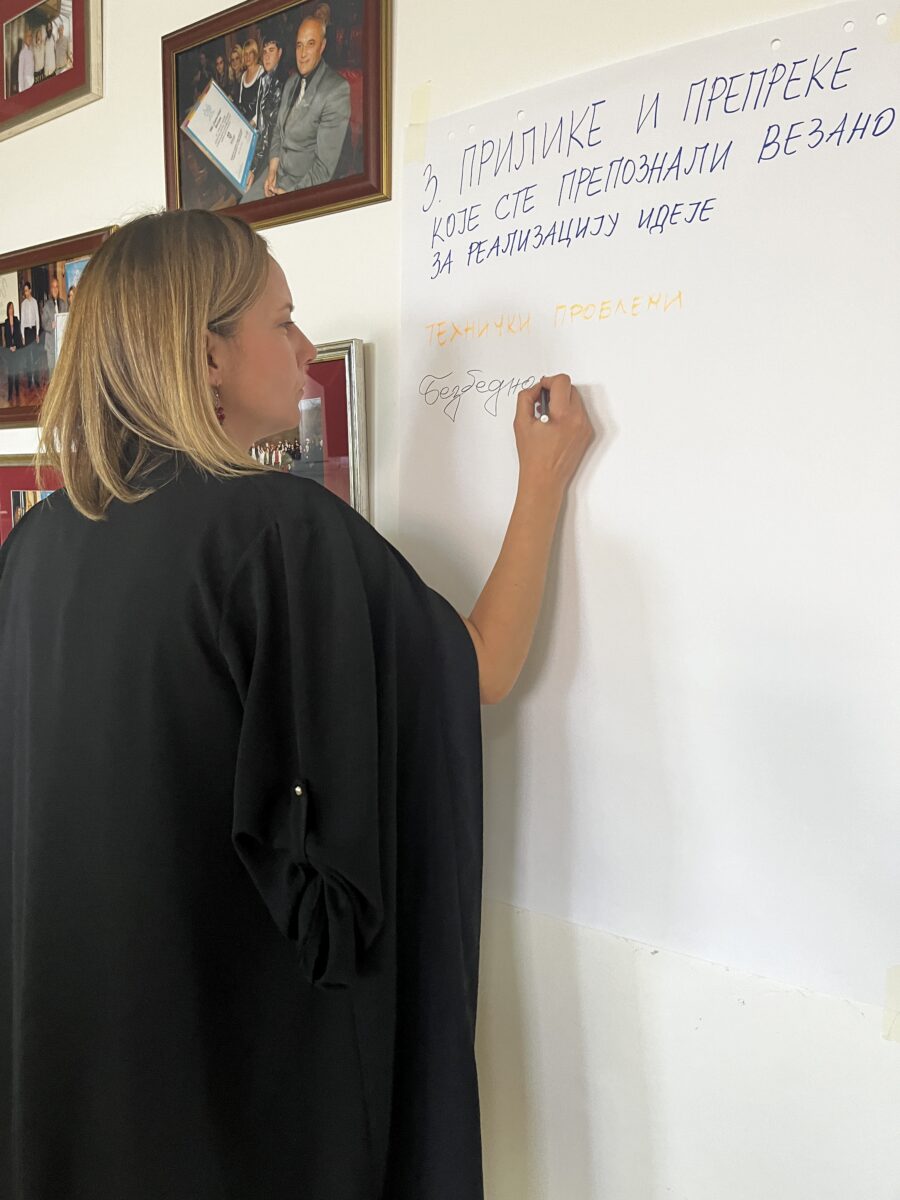 3. ПРИЛИКЕ И ПРЕПРЕКЕ
КОЈЕ СТЕ ПРЕПОЗНАЛИ ВЕЗАНО
ЗА РЕАЛИЗАЦИЈУ ИДЕЈЕ
ТЕХНИЧКИ ПРОБЛЕМИ
Безбедно